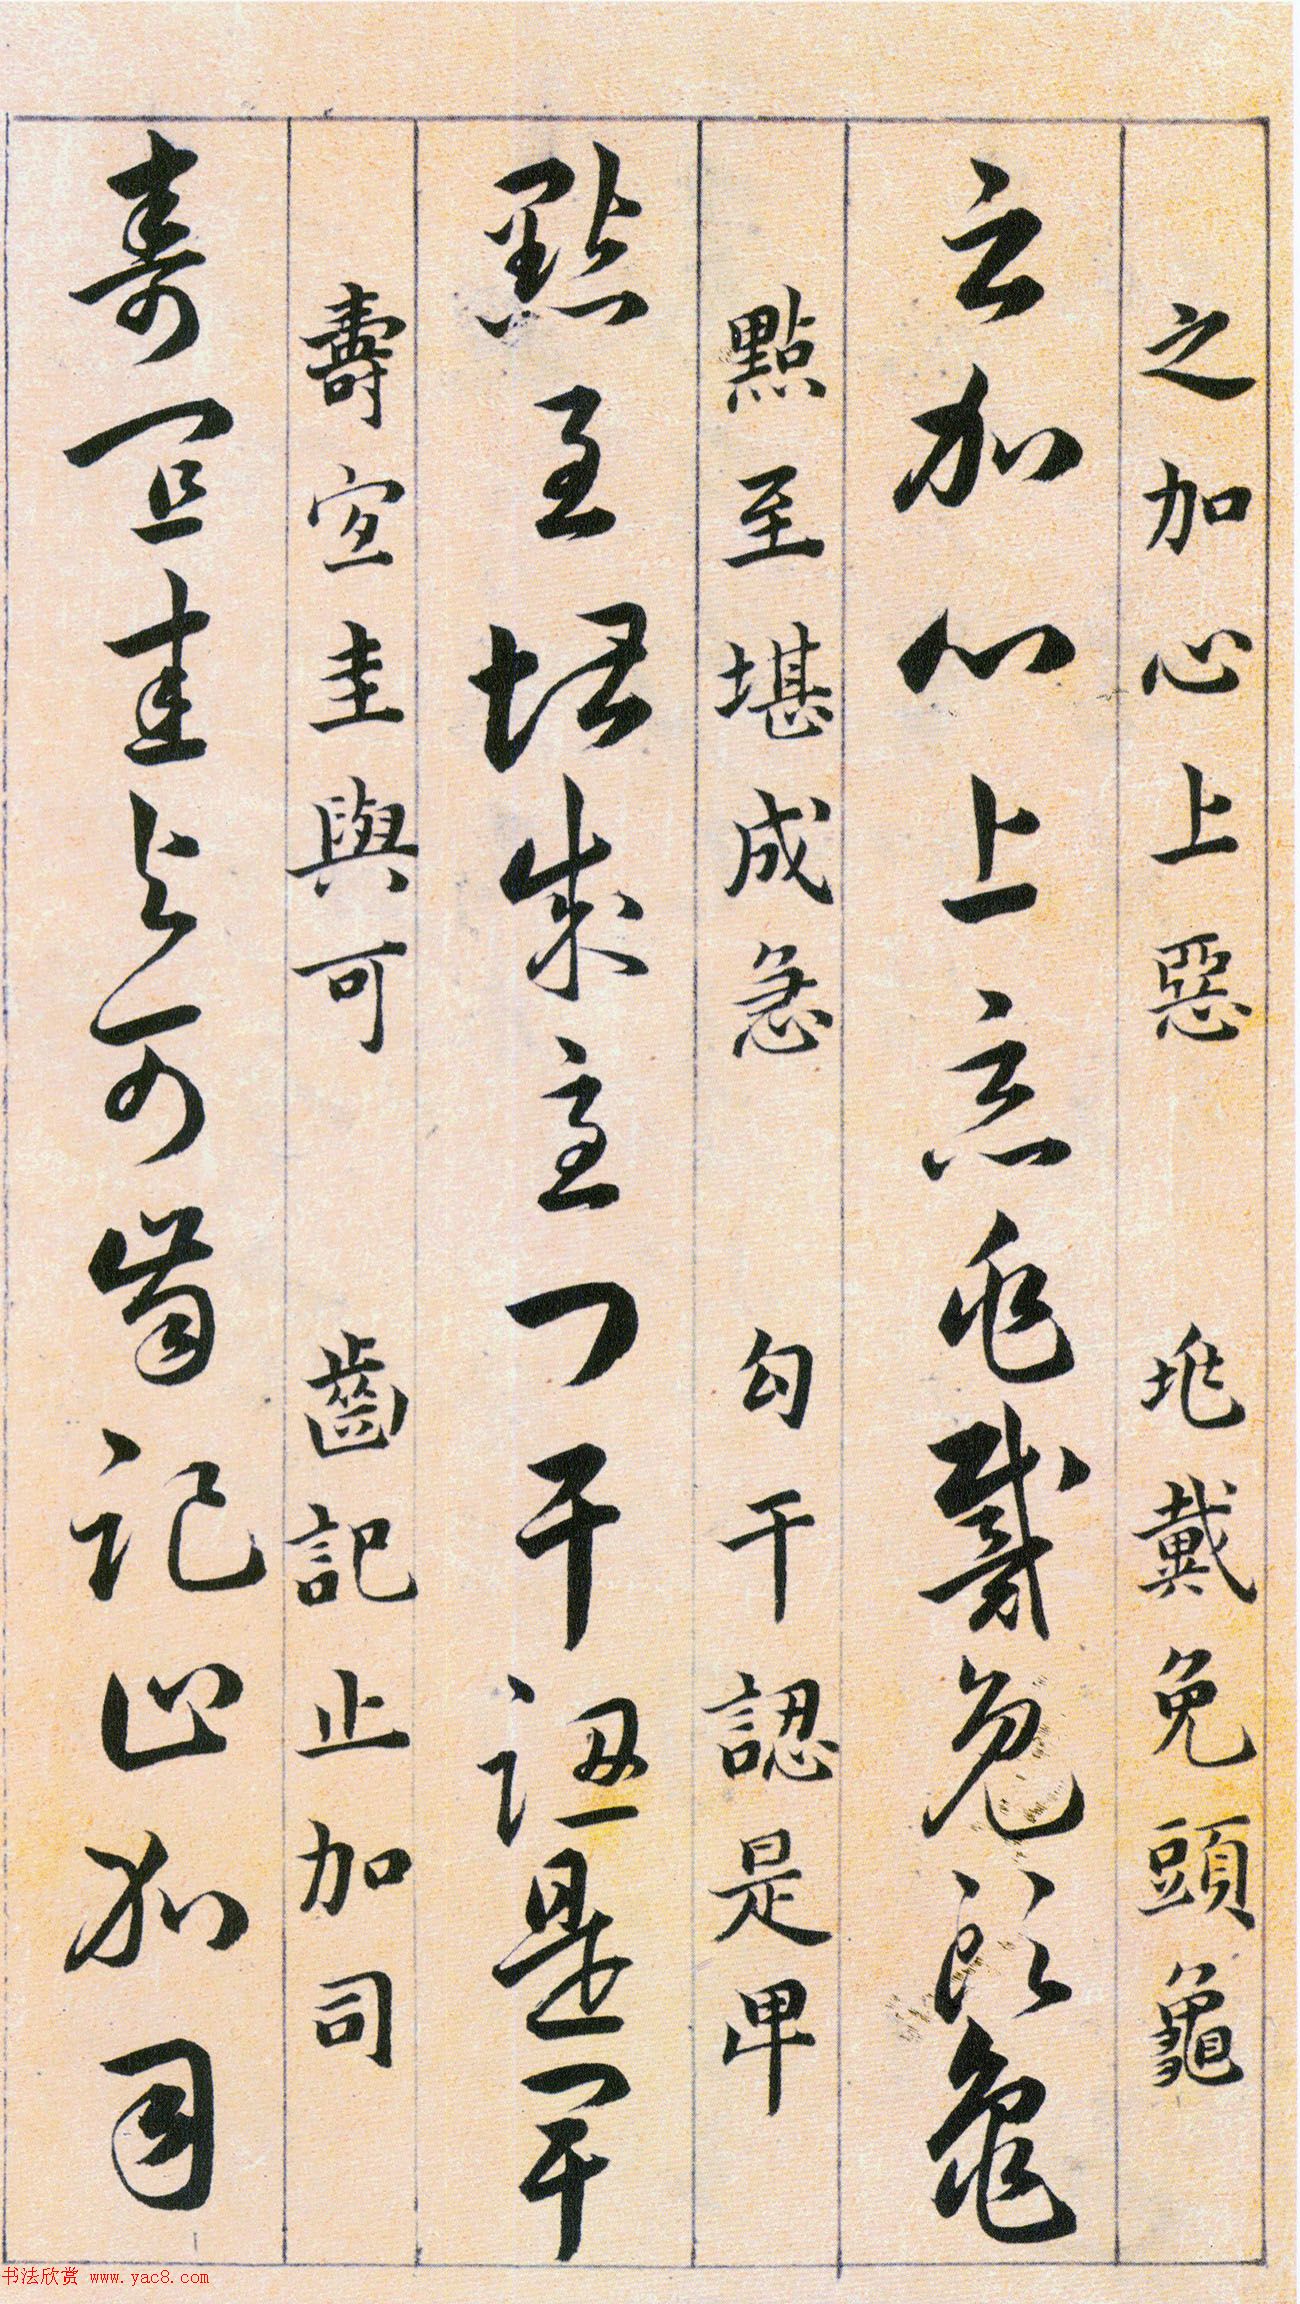 之加心上惡 兆戴免頭龜
之加心上惡兆戴免頭龜
點至堪成急 勾干認是卑
點至堪成急勾干認是卑
壽宜圭與可 齒記止加司
壽宜圭與可齒記止加司
书法欣赏 www.yac8.com